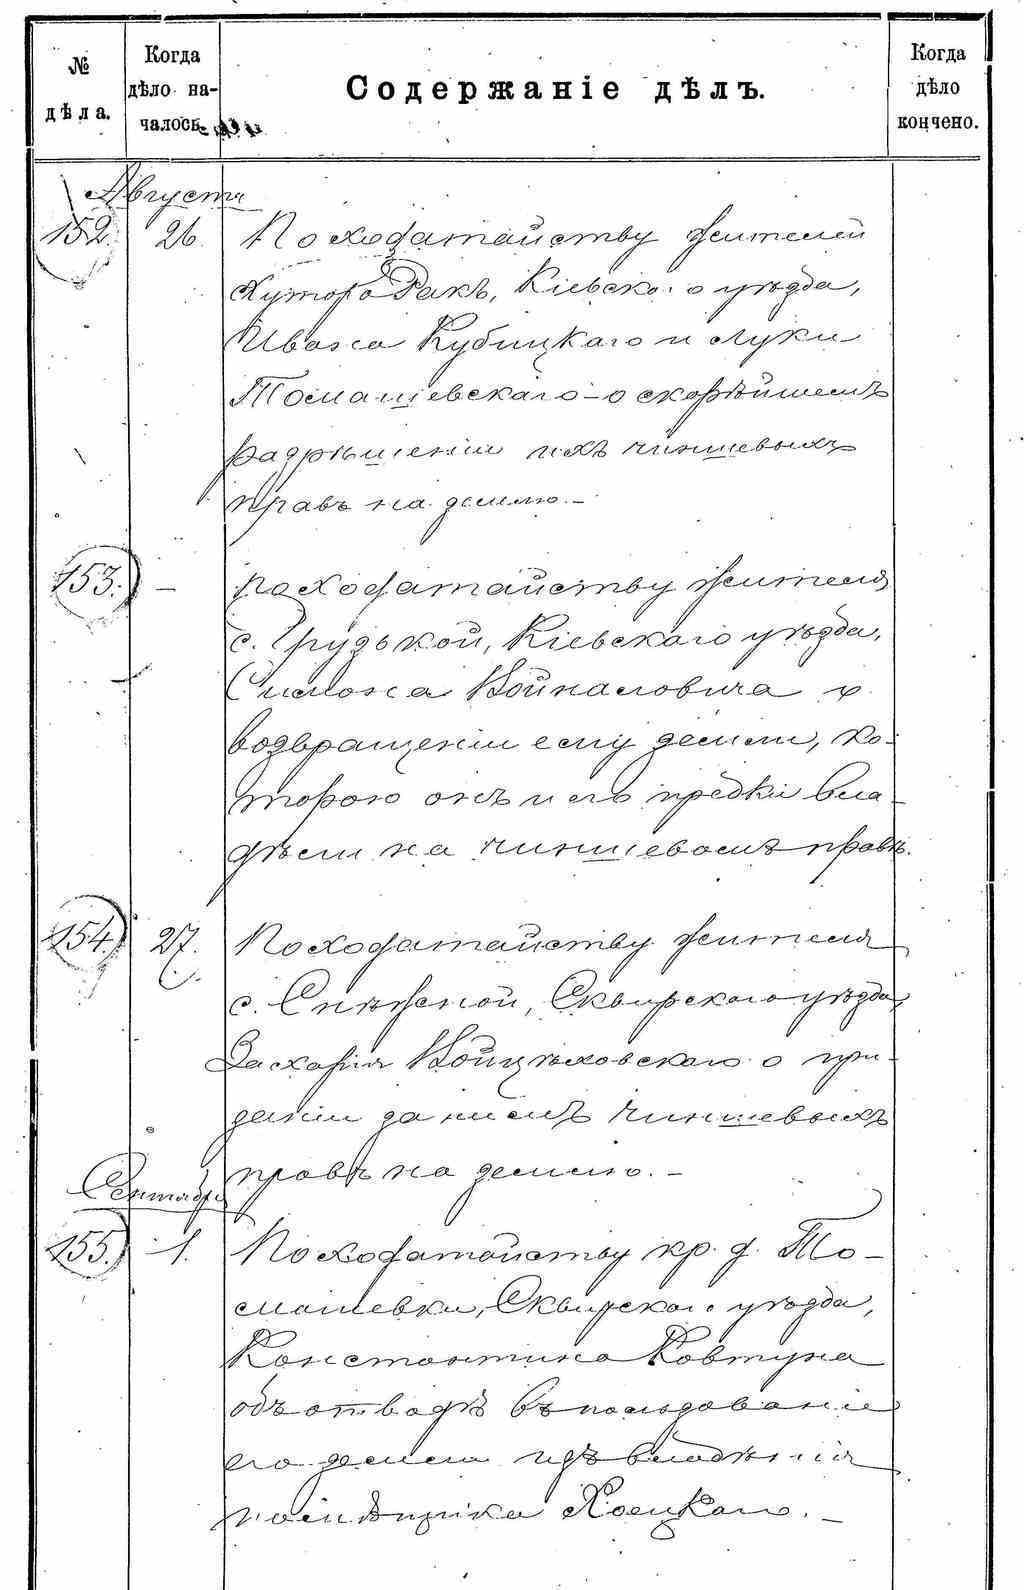 № дѣла.
Когда дѣло началось.
Содержаніе дѣлъ.
Когда дѣло кончено.
Августа
152. 26. По ходатайству жителей
хутора Ракъ, Кіевскаго уѣзда,
Ивана Кубицкаго и Луки
Томашевскаго - о скорѣйшемъ
разрѣшеніи ихъ чиншевыхъ
правъ на землю. -
153. - По ходатайству жителя
с. Грузькой, Кіевскаго уѣзда,
Симона Войналовича о
возвращеніи ему земли, ко-
торою онъ и его предки вла-
дѣли на чиншевомъ правѣ.
154. 27. По ходатайству жителя
с. Снѣжной, Сквирскаго уѣзда,
Захарія Войцѣховскаго о при-
знаніи за нимъ чиншевыхъ
правъ на землю. -
Сентября
155. 1. По ходатайству кр. д. То-
машевки, Сквирскаго уѣзда,
Константина Ковтуна
объ отводѣ въ пользованіе
его земли изъ владѣнія
помѣщика Хоецкаго. -